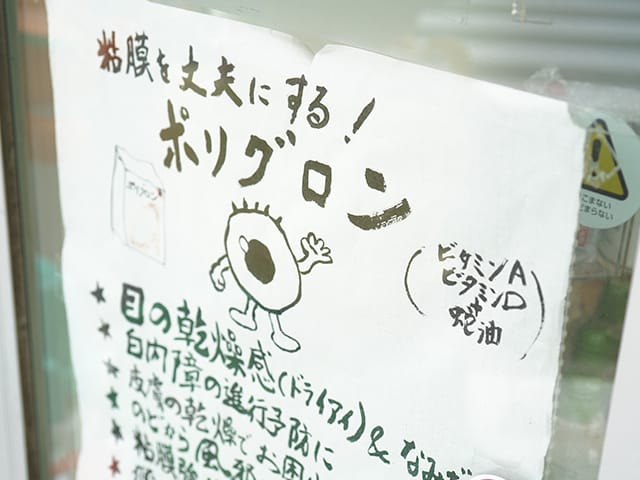 粘膜を丈夫にする!
ポリグロン
ポリグロン
ビタミンA
ビタミンD
+
蛇油
★目の乾燥感(ドライアイ)&なみだ
★白内障の進行予防に
★皮膚の乾燥でお困
★のどから風邪
★粘膜強
★
こまない
まらない